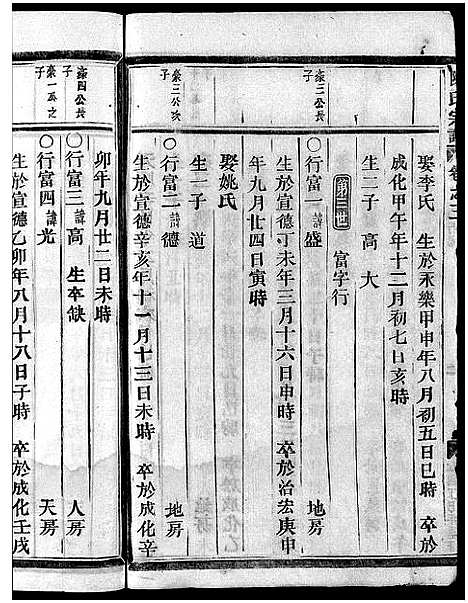 氏宗譜 卷之二
娶李氏 生於永樂甲申年八月初五日巳時 卒於
成化甲午年十二月初七日亥時
生二子 高 大
第三世 富字行
豪三公長子
〇行富一 諱盛 地房
生於宣德丁未年三月十六日申時 卒於治宏庚申
年九月廿四日寅時
娶姚氏
生一子 道
豪三公次子
〇行富二 諱德 地房
生於宣德辛亥年十一月十三日未時 卒於成化辛
卯年九月廿二日未時
豪四公長子
〇行富三 諱高 生卒缺 人房
豪一公之子
〇行富四 諱光 天房
生於宣德乙卯年八月十八日子時 卒於成化壬戌